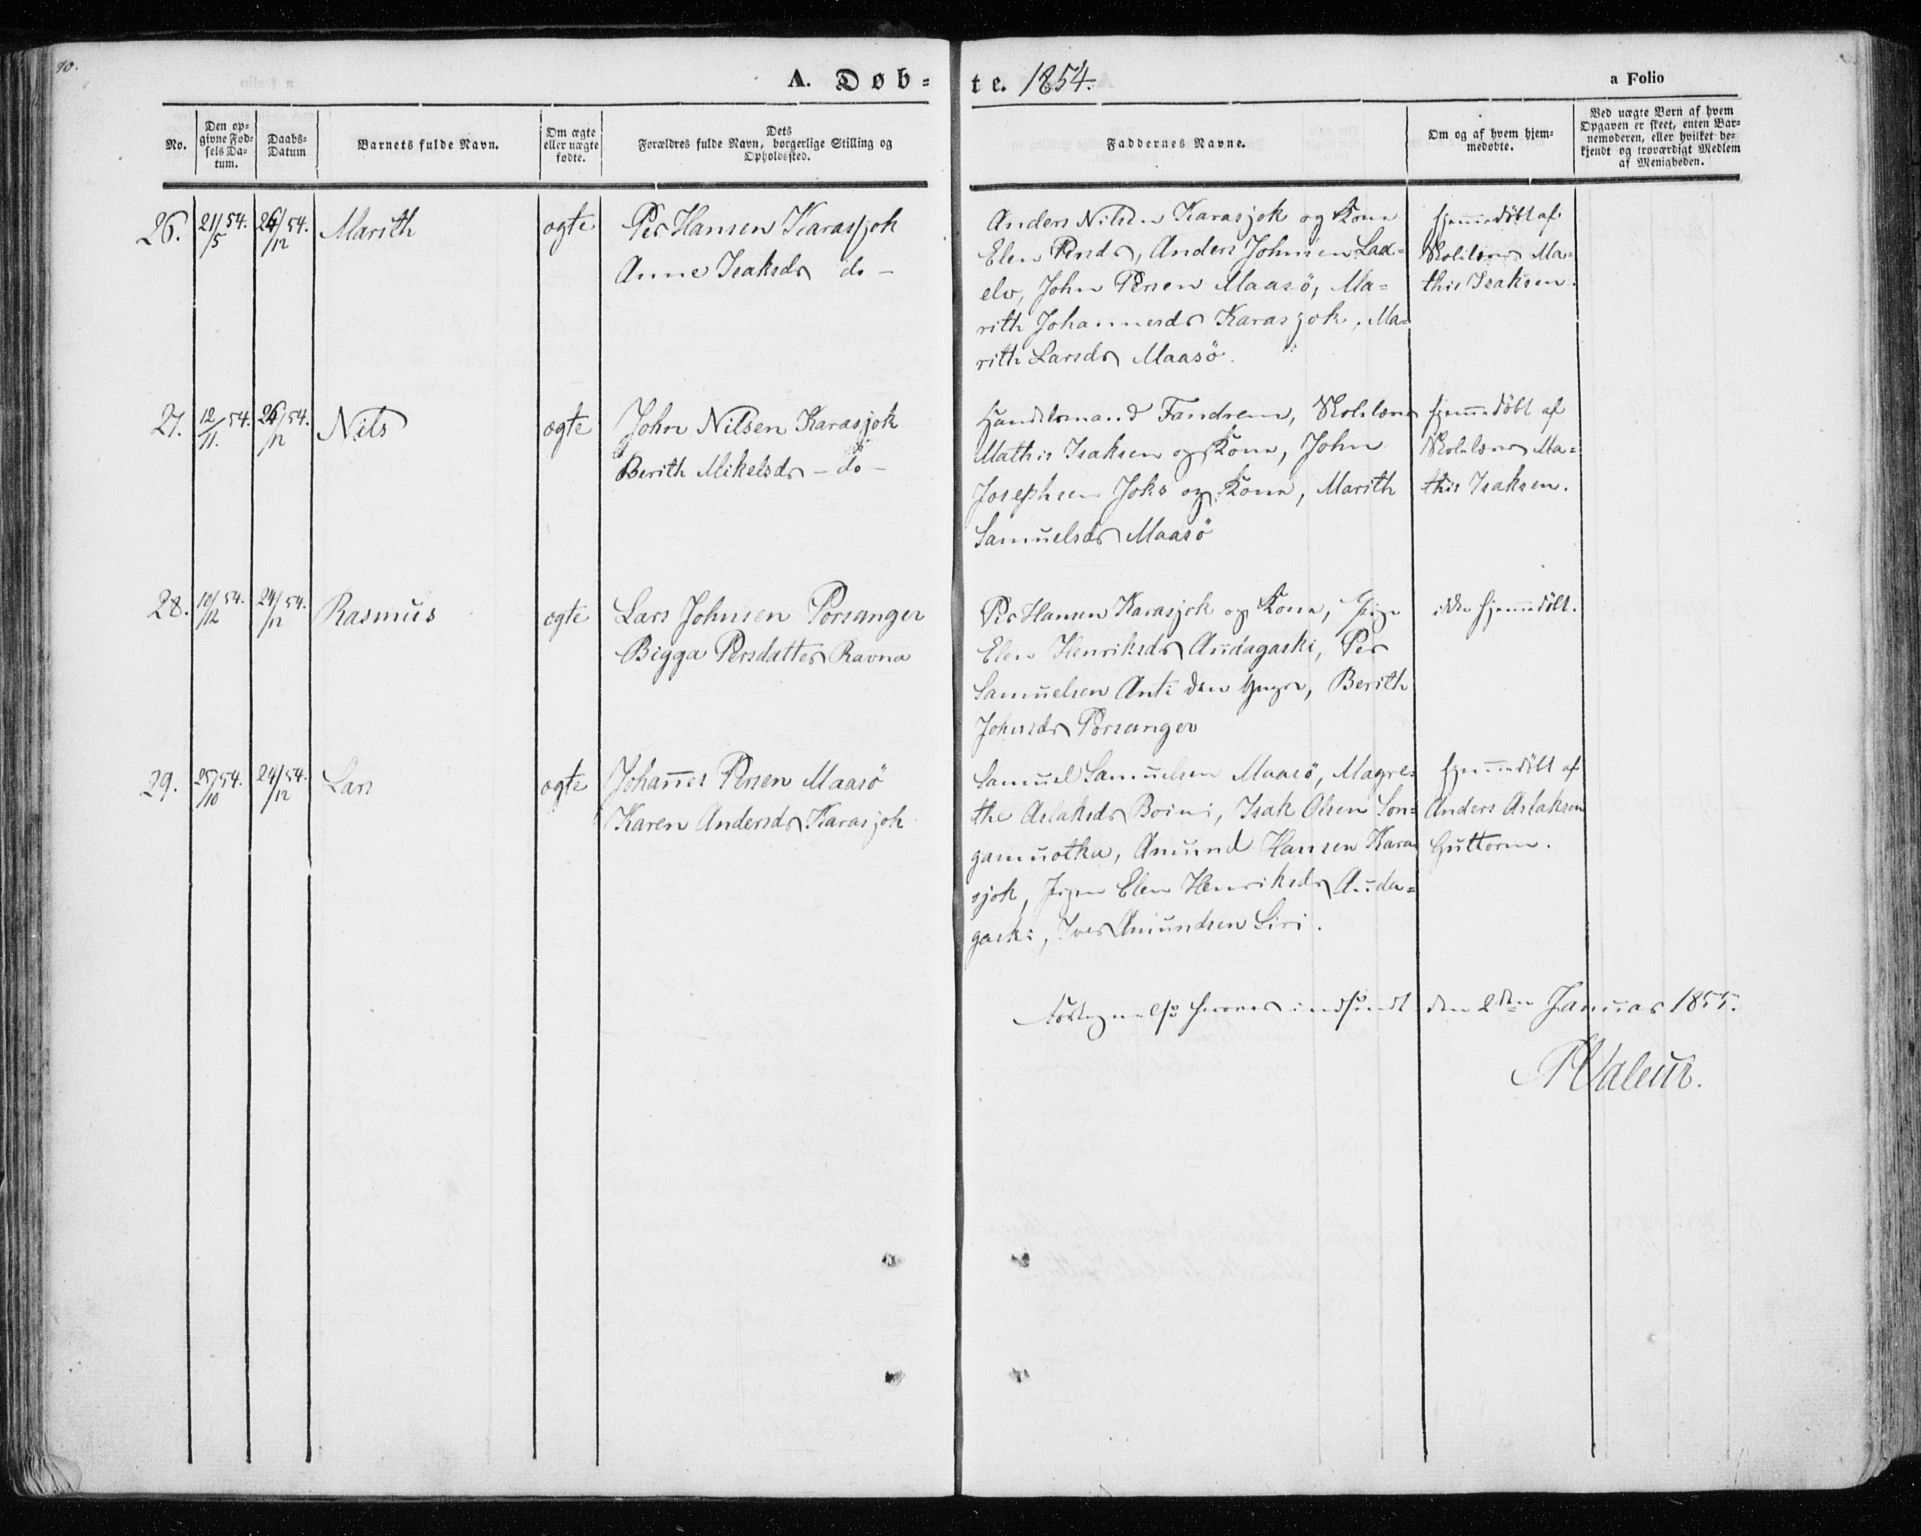 10.
A. Døb-
te. 1854.
a Folio
No.
Den op-
givne Fød-
sels Da-
tum.
Daabs-
Datum
Barnets fulde Navn.
Om ægte
eller uægte
fødte.
Dets
Forældres fulde Navn, borgerlige Stilling og
Opholdssted.
Faddernes Navne.
Om og af hvem hjem-
medøbte.
Ved uægte Børn af hvem
Opgaven er skeet, enten Bar-
nemoderen, eller hvilket be-
kjendt og troværdigt Medlem
af Menigheden.
26.
21/5 54.
26/12 54.
Marith
ægte
Per Hansen Karasjok
Anne Isaksdr do -
Anders Nilsen Karasjok og Kone
Elen Persdr, Anders Johnsen Lax-
elv, John Persen Maasö, Ma-
rith Johannesdr Karasjok, Ma-
rith Larsdr Maasö.
hjemmedöbt af
Skolelærer Ma-
this Isaksen.
27.
12/11. 54.
26/12 54.
Nils
ægte
John Nilsen Karasjok
Berith Mikelsdr - do -
Handelsmand Fandrem, Skolelærer
Mathis Isaksen og Kone, John
Josephsen Joks og Kone, Marith
Samuelsdr Maasö
hjemmedöbt af
Skolelærer Ma-
this Isaksen.
28.
10/12 54.
24/12 54.
Rasmus
ægte
Lars Johnsen Porsanger
Bigga Persdatter Ravna
Per Hansen Karasjok og Kone, Pige
Elen Henriksdr Audagaski, Per
Samuelsen Anti den yngre, Berith
Johnsdr Porsanger
ikke hjemmedöbt.
29.
25/10 54.
24/12 54.
Lars
ægte
Johannes Persen Maasö
Karen Andersdr Karasjok
Samuel Samuelsen Maasö, Magre-
the Aslaksdr Boini, Isak Olsen Son-
gamuotka, Amund Hansen Kara-
sjok, Pigen Elen Henriksdr Auda-
gaski, Iver Amundsen Siri.
hjemmedöbt af
Anders Aslaksen
Guttorm.
indsendt den 2den Januar 1855.
Valeur.